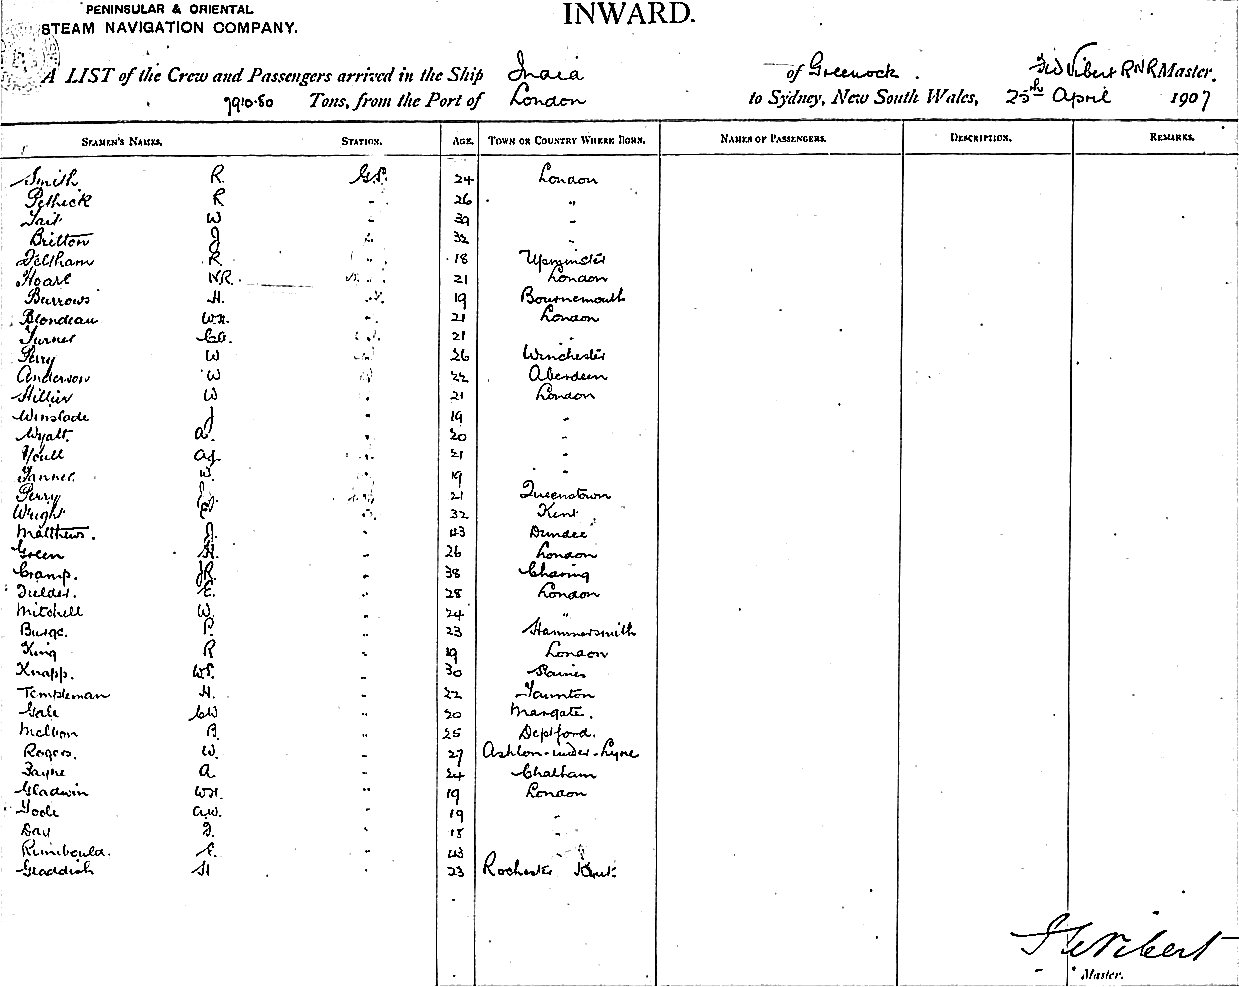 PENINSULAR & ORIENTAL
STEAM NAVIGATION COMPANY.
INWARD.
A LIST of the Crew and Passengers arrived in the Ship India of Greenock. Vibert RNR Master,
7910.80 Tons, from the Port of London to Sydney, New South Wales, 25th April 1907
SEAMEN'S NAMES. STATION. AGE. TOWN OR COUNTRY WHERE BORN. NAMES OF PASSENGERS. DESCRIPTION. REMARKS.
Smith R G.S. 24 London
Pethick R - 26 "
Tait W - 39 -
Britton J 32
Feltham R 18 Upminster
Hoare 21 London
Burrows H. 19 Bournemouth
Blondeau WH. 21 London
Turner 21
Perry W 26 Winchester
Anderson W 22 Aberdeen
Hillier W 21 London
Winslade J 19 -
Wyatt. A. 20 -
Youll AJ. 21 -
Tanner. W. 19 -
Perry J. 21 Queenstown
Wright 32 Kent
Matthews. J. 43 Dundee
Green H. 26 London
Cramp. JR. 38 Charing
E. 28 London
Mitchell W. 24 "
Burge. P. 23 Hammersmith
King R 19 London
Knapp. WS. 30 Staines
Templeman H. 22 Taunton
Gale CW 20 Margate.
25 Deptford.
Rogers. W. 27 Ashton-under-Lyne
A 24 Chatham
Gladwin WH. 19 London
Poole A.W. 19 -
Day 18 -
43
H 23 Rochester Kent
Vibert
Master.